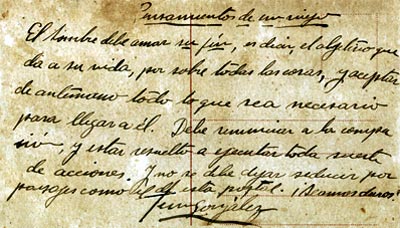 Pensamientos de un viejo
El hombre debe amar su fin, es decir, el objetivo que
da a su vida, por sobre todas las cosas, y aceptar
de antemano todo lo que sea necesario
para llegar a él. Debe renunciar a la compa
sión, y estar resuelto a ejecutar toda suerte
de acciones. Y no se debe dejar seducir por
paisajes como el de esta postal. ¡Seamos duros!
González